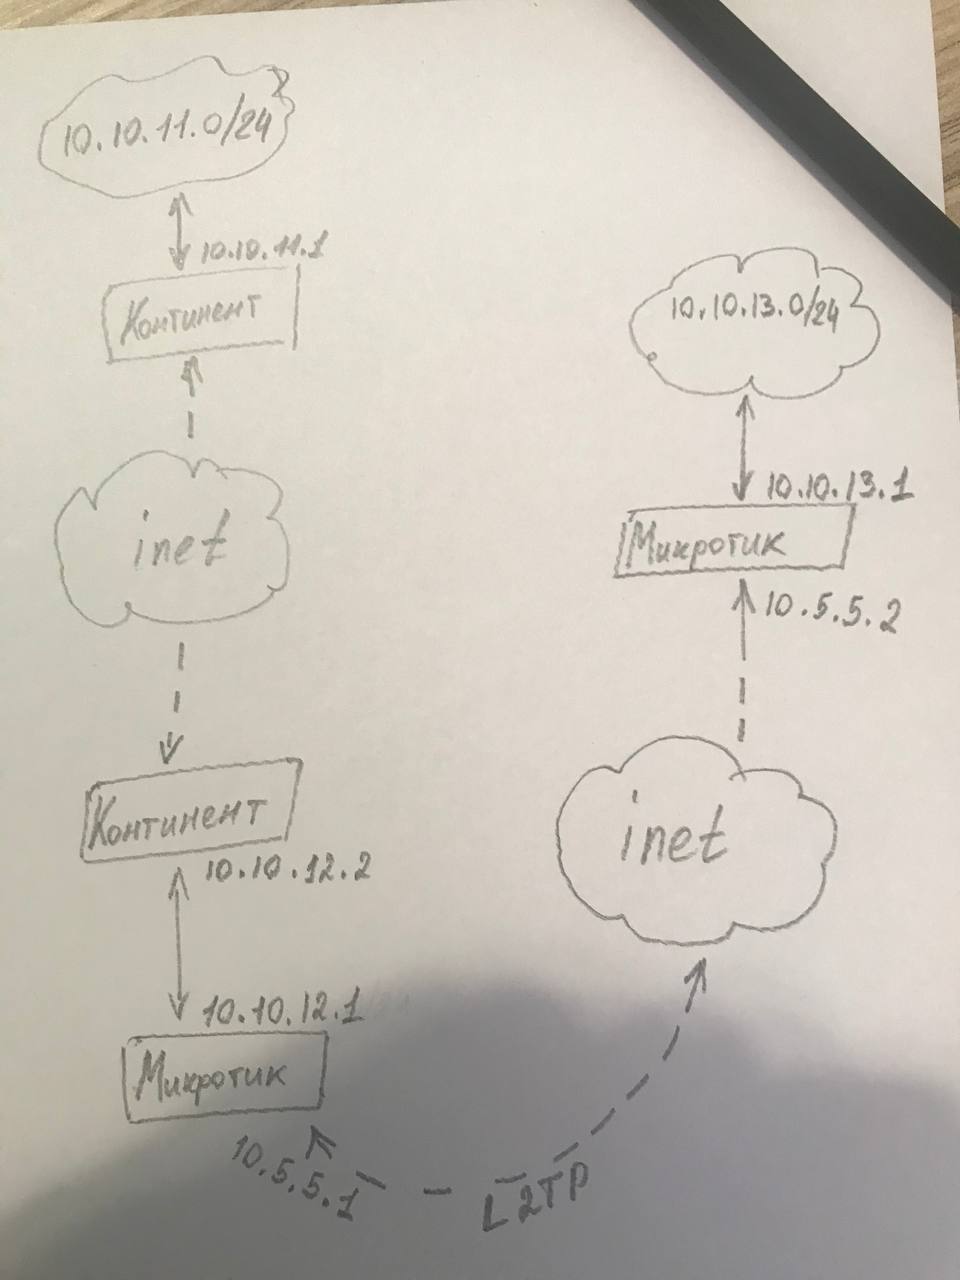 10.10.11.0/24
10.10.11.1
Континент
inet
Континент
10.10.12.2
10.10.12.1
Микротик
10.5.5.1
L2TP
10.10.13.0/24
10.10.13.1
Микротик
10.5.5.2
inet